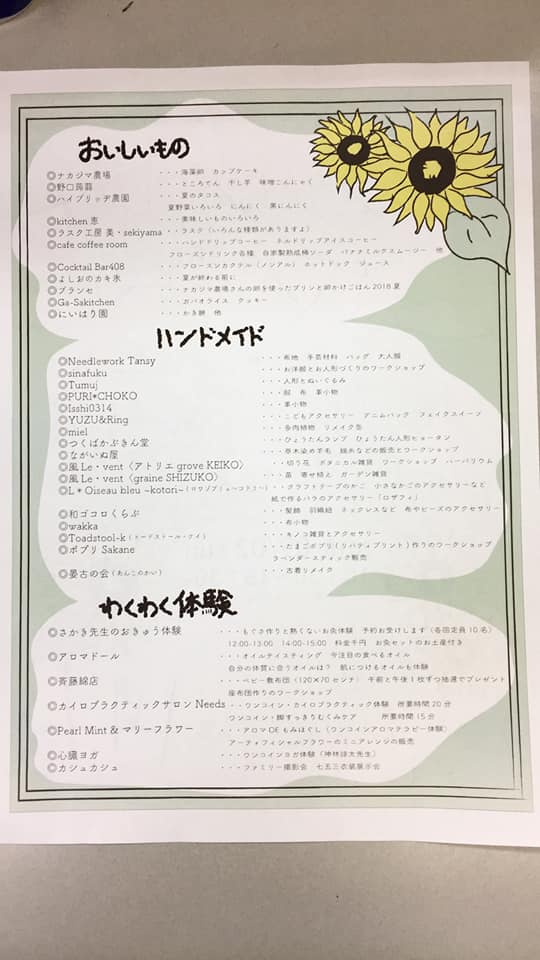 おいしいもの
◎ナカジマ農場 ・・・海藻卵 カップケーキ
◎野口蒟蒻 ・・・ところてん 干し芋 味噌こんにゃく
◎ハイブリッヂ農園 ・・・夏のタコス
夏野菜いろいろ にんにく 黒にんにく
◎kitchen 恵 ・・・美味しいものいろいろ
◎ラスク工房 美・sekiyama ・・・ラスク(いろんな種類がありますよ)
◎cafe coffee room ・・・ハンドドリップコーヒー ネルドリップアイスコーヒー
フローズンドリンク各種 自家製熟成梅ソーダ バナナミルクスムージー 他
◎Cocktail Bar408 ・・・フローズンカクテル(ノンアル) ホットドック ジュース
◎よしおのカキ氷 ・・・夏が終わる前に
◎ブランセ ・・・ナカジマ農場さんの卵を使ったプリンと卵かけごはん2018夏
◎Ga-Sakitchen ・・・ガパオライス クッキー
◎にいはり園 ・・・かき餅 他
ハンドメイド
◎Needlework Tansy ・・・布地 手芸材料 バッグ 大人服
◎sinafuku ・・・お洋服とお人形づくりのワークショップ
◎Tumuj ・・・人形とぬいぐるみ
◎PURI*CHOKO ・・・服 布 革小物
◎Isshi0314 ・・・革小物
◎YUZU&Ring ・・・こどもアクセサリー デニムバッグ フェイクスイーツ
◎miel ・・・多肉植物 リメイク缶
◎つくばかぶきん堂 ・・・ひょうたんランプ ひょうたん人形ヒョータン
◎ながいぬ屋 ・・・草木染め羊毛 綿糸などの販売とワークショップ
◎風 Le・vent〈アトリエ grove KEIKO〉 ・・・切り花 ボタニカル雑貨 ワークショップ ハーバリウム
◎風 Le・vent〈graine SHIZUKO〉 ・・・苗 寄せ植え ガーデン雑貨
◎L*Oiseau bleu ~kotori~ ・・・クラフトテープのかご 小さなかごのアクセサリーなど
紙で作るバラのアクセサリー「ロザフィ」
◎和ゴコロくらぶ ・・・髪飾 羽織紐 ネックレスなど 布やビーズのアクセサリー
◎wakka ・・・布小物
◎Toadstool-k(トードストール・ケイ) ・・・キノコ雑貨とアクセサリー
◎ポプリ Sakane ・・・たまごポプリ(リバティプリント)作りのワークショップ
ラベンダースティック販売
◎晏古の会(あんこのかい) ・・・古着リメイク
わくわく体験
◎さかき先生のおきゅう体験 ・・・もぐさ作りと熱くないお灸体験 予約お受けします(各回定員10名)
12:00-13:00 14:00-15:00 料金千円 お灸セットのお土産付き
◎アロマドール ・・・オイルテイスティング 今注目の食べるオイル
自分の体質に合うオイルは? 肌につけるオイルも体験
◎斉藤綿店 ・・・ベビー敷布団(120×70センチ) 午前と午後1枚ずつ抽選でプレゼント
座布団作りのワークショップ
◎カイロプラクティックサロン Needs ・・・ワンコイン・カイロプラクティック体験 所要時間20分
ワンコイン・脚すっきりむくみケア 所要時間15分
◎Pearl Mint & マリーフラワー ・・・アロマDEもみほぐし(ワンコインアロマテラピー体験)
アーティフィシャルフラワーのミニアレンジの販売
◎心臓ヨガ ・・・ワンコインヨガ体験(神林諒太先生)
◎カシュカシュ ・・・ファミリー撮影会 七五三衣装展示会